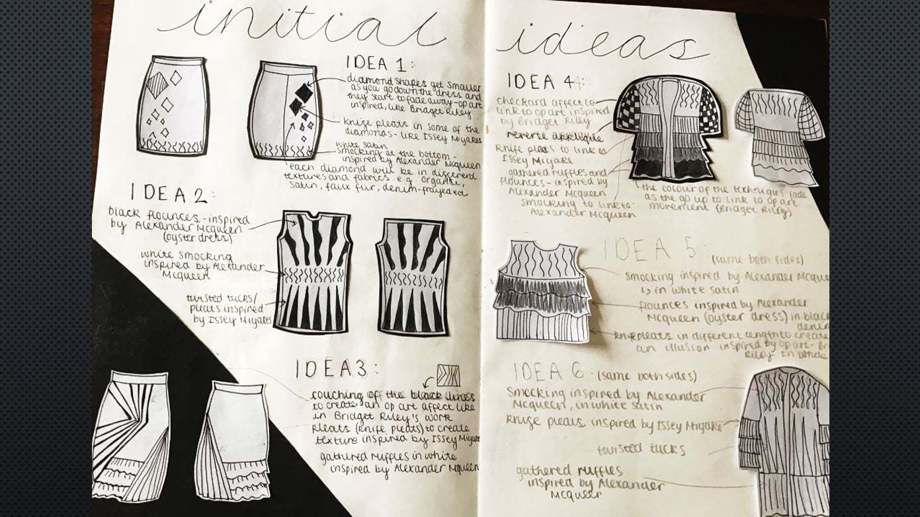 initial ideas
IDEA 1:
diamond shapes get smaller
as you go down the dress and
they start to fade away - op art
inspired, like Bridget Riley
knife pleats in some of the
diamonds - like Issey Miyake
white satin
smocking at the bottom -
inspired by Alexander McQueen
each diamond will be in different
textures and fabrics e.g. organza,
satin, faux fur, denim - frayed
IDEA 2:
black flounces - inspired
by Alexander McQueen
(oyster dress)
white smocking
inspired by Alexander
McQueen
twisted tucks/
pleats inspired
by Issey Miyake
IDEA 3:
couching off the black lines
to create an op art affect like
in Bridget Riley's work
pleats (knife pleats) to create
texture inspired by Issey Miyake
gathered ruffles in white
inspired by Alexander McQueen
IDEA 4:
checkard affect to
link to op art inspired
by Bridget Riley
reverse applique
knife pleats to link to
Issey Miyake
gathered ruffles and
flounces - inspired by
Alexander McQueen
smocking to link to
Alexander McQueen
the colour of the techniques fade
as the go up to link to op art
movement (Bridget Riley)
IDEA 5:
(same both sides)
smocking inspired by Alexander McQueen
in white satin
flounces inspired by Alexander
McQueen (oyster dress) in black
denim
knife pleats in different length to create
an illusion inspired by op art - Br
Riley - in white
IDEA 6
(same both sides)
smocking inspired by Alexander
McQueen, in white satin
knife pleats inspired by Issey Miyake
twisted tucks
gathered ruffles
inspired by Alexander
McQueen